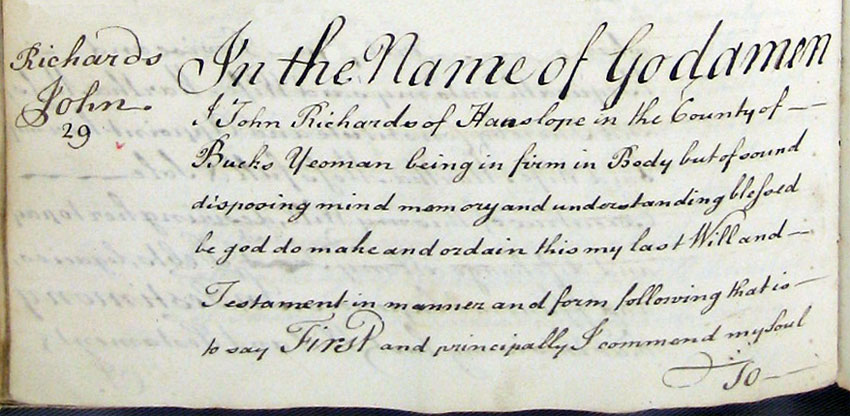 Richards
John.
29
In the Name of God amen
I John Richards of Hanslope in the County of —
Bucks Yeoman being in firm in Body but of sound
disposing mind memory and understanding blessed
be god do make and ordain this my last Will and —
Testament in manner and form following that is —
to say First and principally I commend my Soul
To —